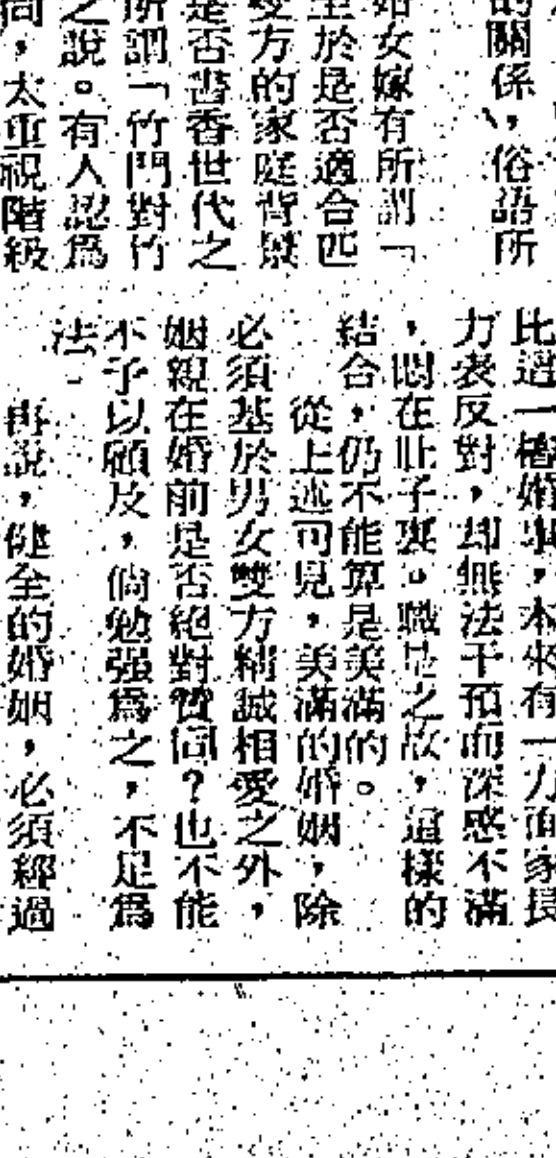 的關係,俗語所
始女嫁有所謂「
至於是否適合匹
雙方的家庭背景
是否書香世代之
所謂「竹門對竹
之說。有人認爲
同,太重視階級
比過一樁婚事,本來有一方面家長
力表反對,却無法干預而深感不滿
,悶在肚子裏。職是之故,這樣的
結合,仍不能算是美滿的。
從上述可見,美滿的婚姻,除
必須基於男女雙方精誠相愛之外,
姻親在婚前是否絕對贊同?也不能
不予以顧及,倘勉强爲之,不足爲
法。
再說,健全的婚姻,必須經過